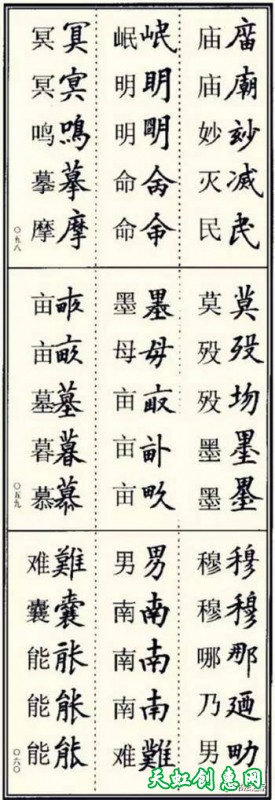 庙 庿
庙 廟
妙 玅
灭 滅
民 民
岷 岷
明 明
明 朙
命
命 命
冥 冥
冥
鸣 鳴
摹 摹
摩 摩
〇五八
莫 莫
殁 歿
殁
墨 墨
墨 墨
墨 墨
母 母
亩
亩
亩 畂
亩
亩 畝
墓 墓
暮 暮
慕 慕
〇五九
穆 穆
穆 穆
哪 那
乃 迺
男
男 男
南 南
南 南
南 南
难 難
难 難
囊 囊
能
能 能
能 能
〇六〇
天虹创意网